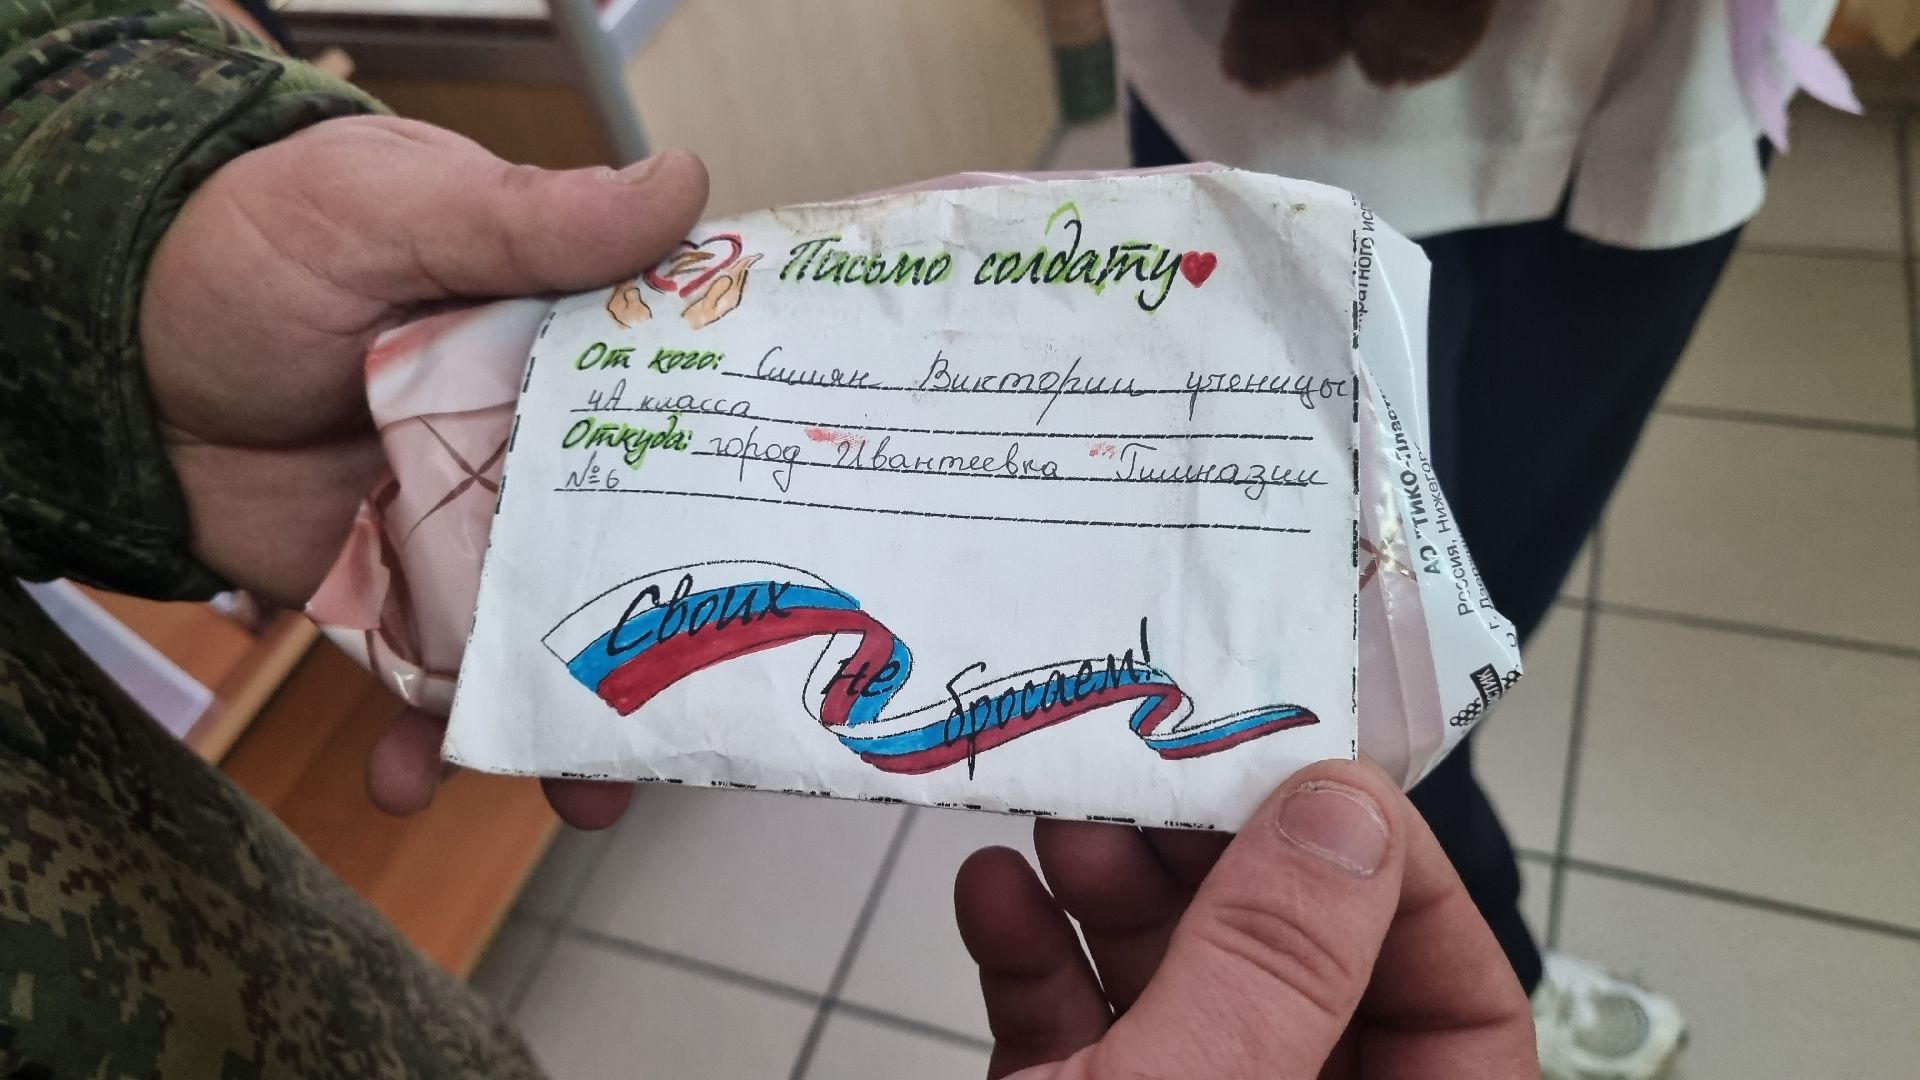 Письмо солдату
От кого: Симян Виктории ученицы
4А класса
Откуда: город Ивантеевка Гимназии
№6
Своих
не
бросаем!
ратного
АО "ТИКО-Пласт
Россия, Нижегор